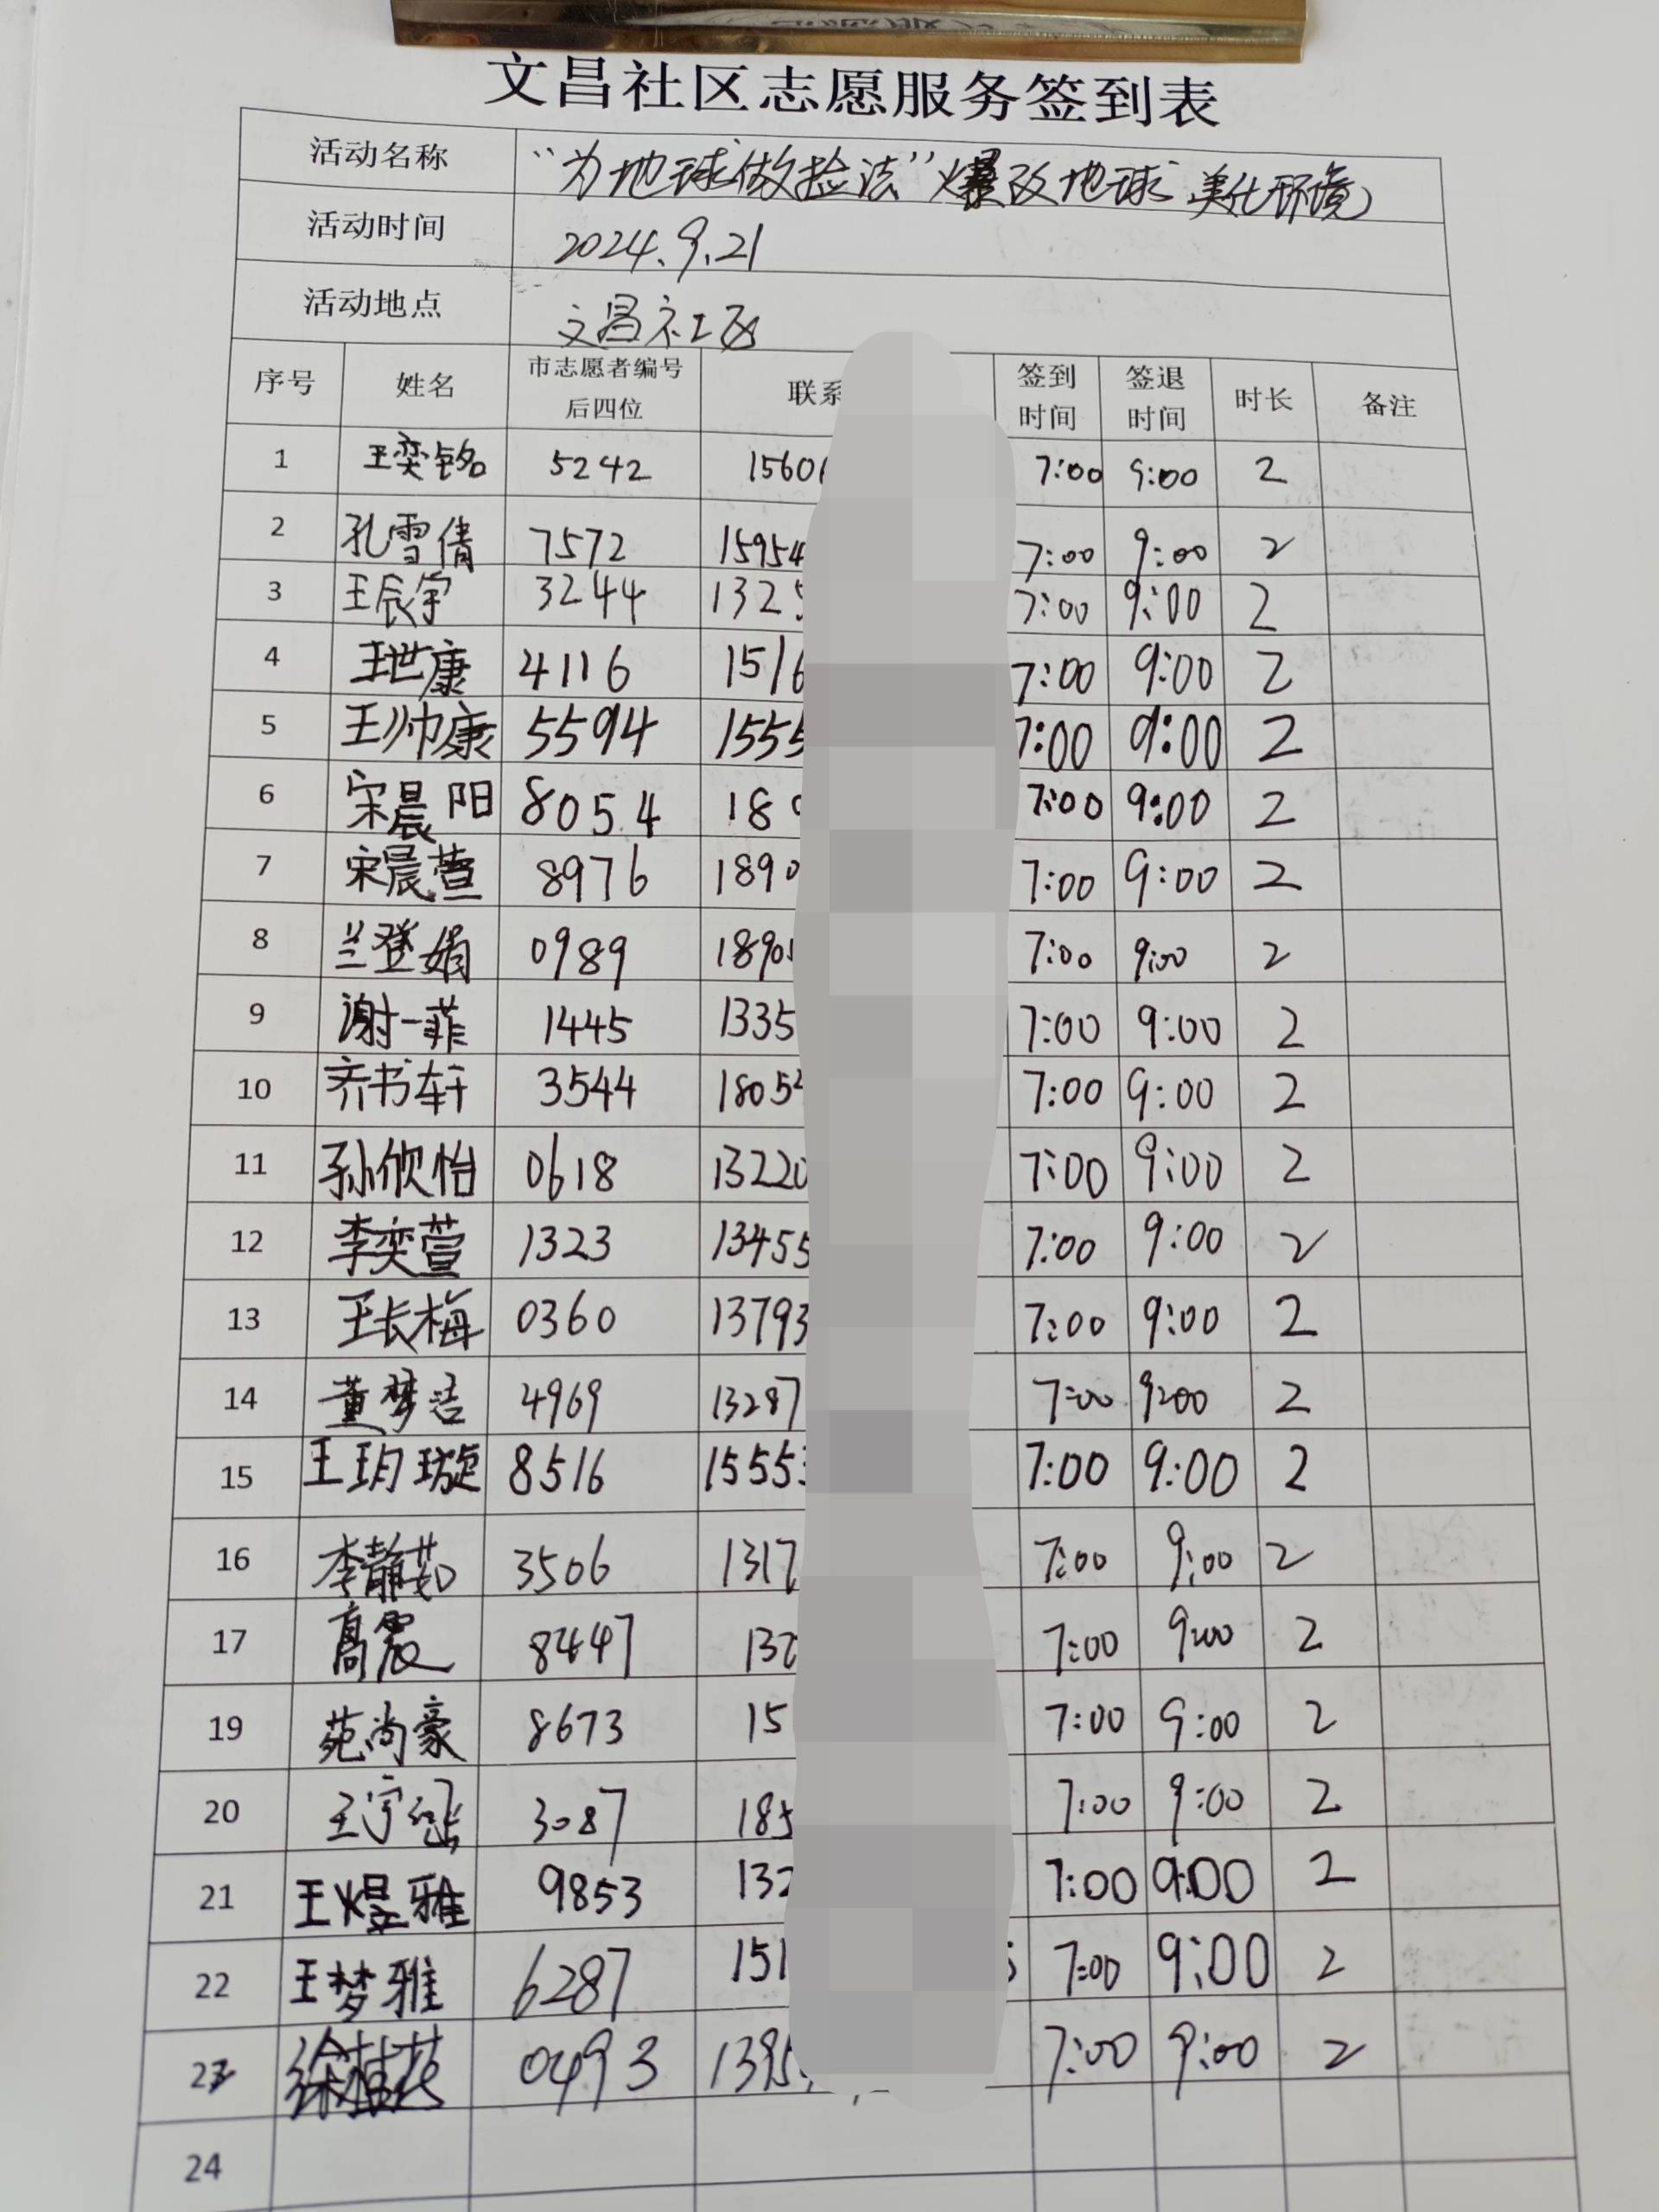 文昌社区志愿服务签到表
活动名称 “为地球做捡法”爆改地球 美化环境
活动时间 2024.9.21
活动地点 文昌社区
序号 姓名 市志愿者编号后四位 联系 签到时间 签退时间 时长 备注
1 王奕铭 5242 1560 7:00 9:00 2
2 孔雪倩 7572 15954 7:00 9:00 2
3 王辰宇 3244 132 7:00 9:00 2
4 王世康 4116 1516 7:00 9:00 2
5 王帅康 5594 1555 7:00 9:00 2
6 宋晨阳 8054 18 7:00 9:00 2
7 宋晨萱 8976 1890 7:00 9:00 2
8 兰登娟 0989 1890 7:00 9:00 2
9 谢一菲 1445 1335 7:00 9:00 2
10 齐书轩 3544 1805 7:00 9:00 2
11 孙欣怡 0618 13220 7:00 9:00 2
12 李奕萱 1323 13455 7:00 9:00 2
13 王长梅 0360 13793 7:00 9:00 2
14 董梦洁 4969 13287 7:00 9:00 2
15 王玥璇 8516 1555 7:00 9:00 2
16 李静茹 3506 1317 7:00 9:00 2
17 高震 8447 13 7:00 9:00 2
19 苑尚豪 8673 15 7:00 9:00 2
20 王宇 3087 185 7:00 9:00 2
21 王煜雅 9853 132 7:00 9:00 2
22 王梦雅 6287 151 7:00 9:00 2
23 徐桂花 0493 1395 7:00 9:00 2
24